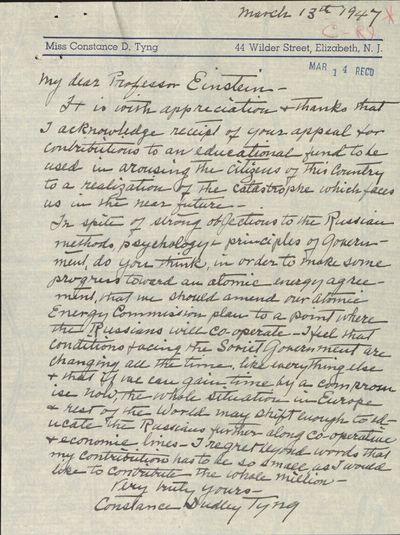 March 13th 1947
Miss Constance D. Tyng 44 Wilder Street, Elizabeth, N. J.
MAR 14 RECD
My dear Professor Einstein -
It is with appreciation & thanks that
I acknowledge receipt of your appeal for
contributions to an educational fund to be
used in arousing the citizens of this Country
to a realization of the catastrophe which faces
us in the near future -
In spite of strong objections to the Russian
methods, psychology & principles of Govern-
ment, do you think, in order to make some
progress toward an atomic energy agree-
ment, that we should amend our Atomic
Energy Commission plan to a point where
the Russians will co-operate - I feel that
conditions facing the Soviet Government are
changing all the time, like everything else
& that if we can gain time by a comprom
ise now, the whole situation in Europe
& rest of the world may shift enough to ed-
ucate the Russians further along co-operative
& economic lines - I regret beyond words that
my contribution has to be so small as I would
like to contribute the whole million -
Very truly yours -
Constance Dudley Tyng